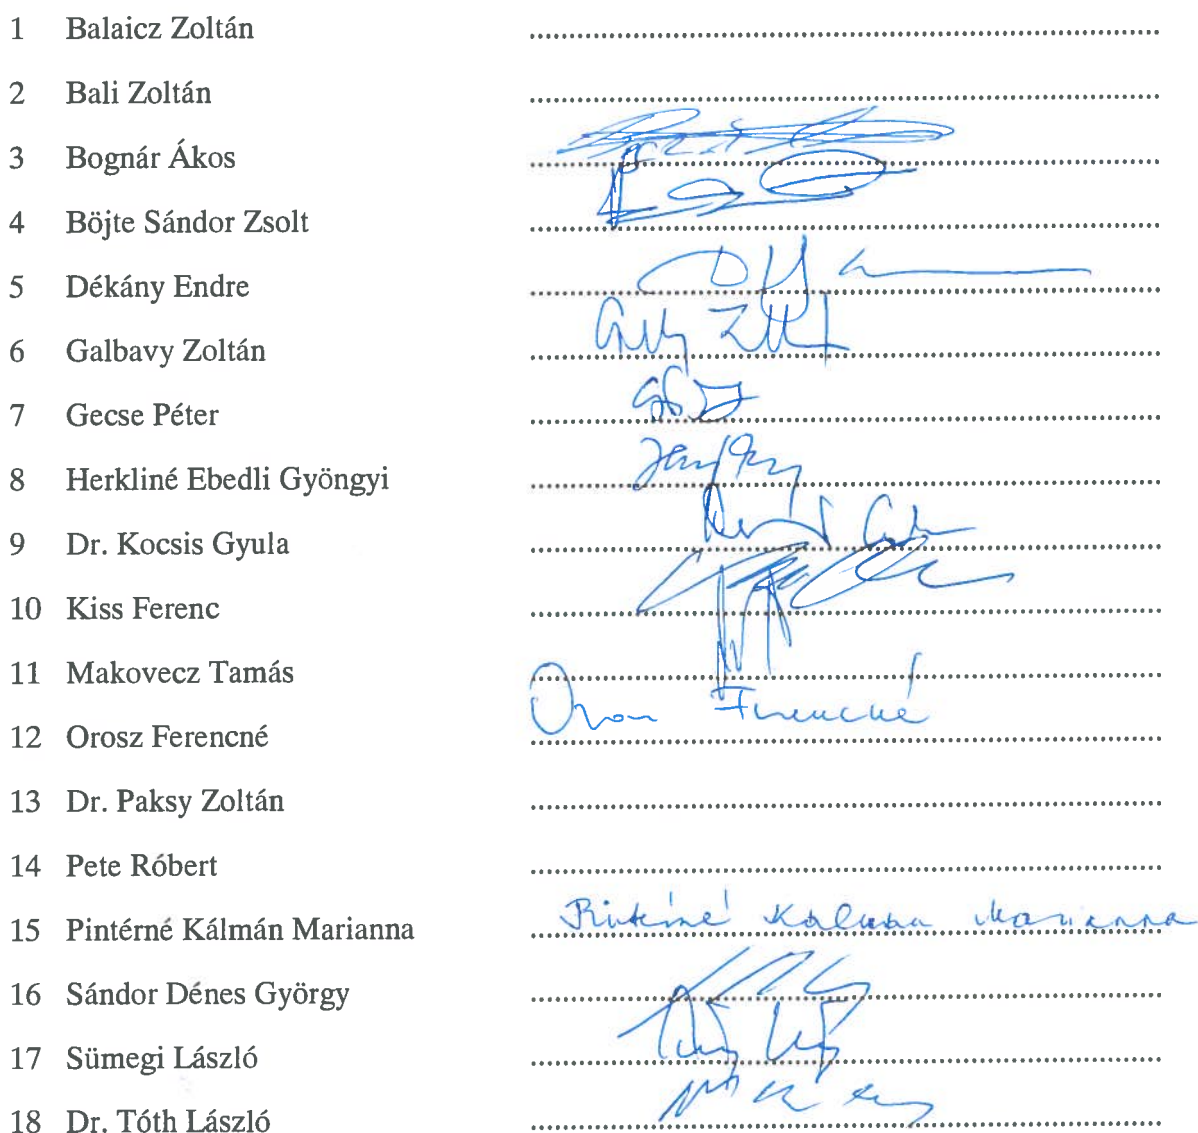 1 Balaicz Zoltán
2 Bali Zoltán
3 Bognár Ákos
4 Böjte Sándor Zsolt
5 Dékány Endre
6 Galbavy Zoltán
7 Gecse Péter
8 Herkliné Ebedli Gyöngyi
9 Dr. Kocsis Gyula
10 Kiss Ferenc
11 Makovecz Tamás
12 Orosz Ferencné Ferencné
13 Dr. Paksy Zoltán
14 Pete Róbert
15 Pintérné Kálmán Marianna Pintérné Kálmán Marianna
16 Sándor Dénes György
17 Sümegi László
18 Dr. Tóth László